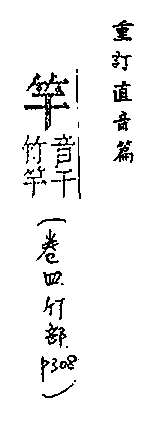 重訂直音篇
竿
音干
竹竿
(卷四.竹部.p308.)